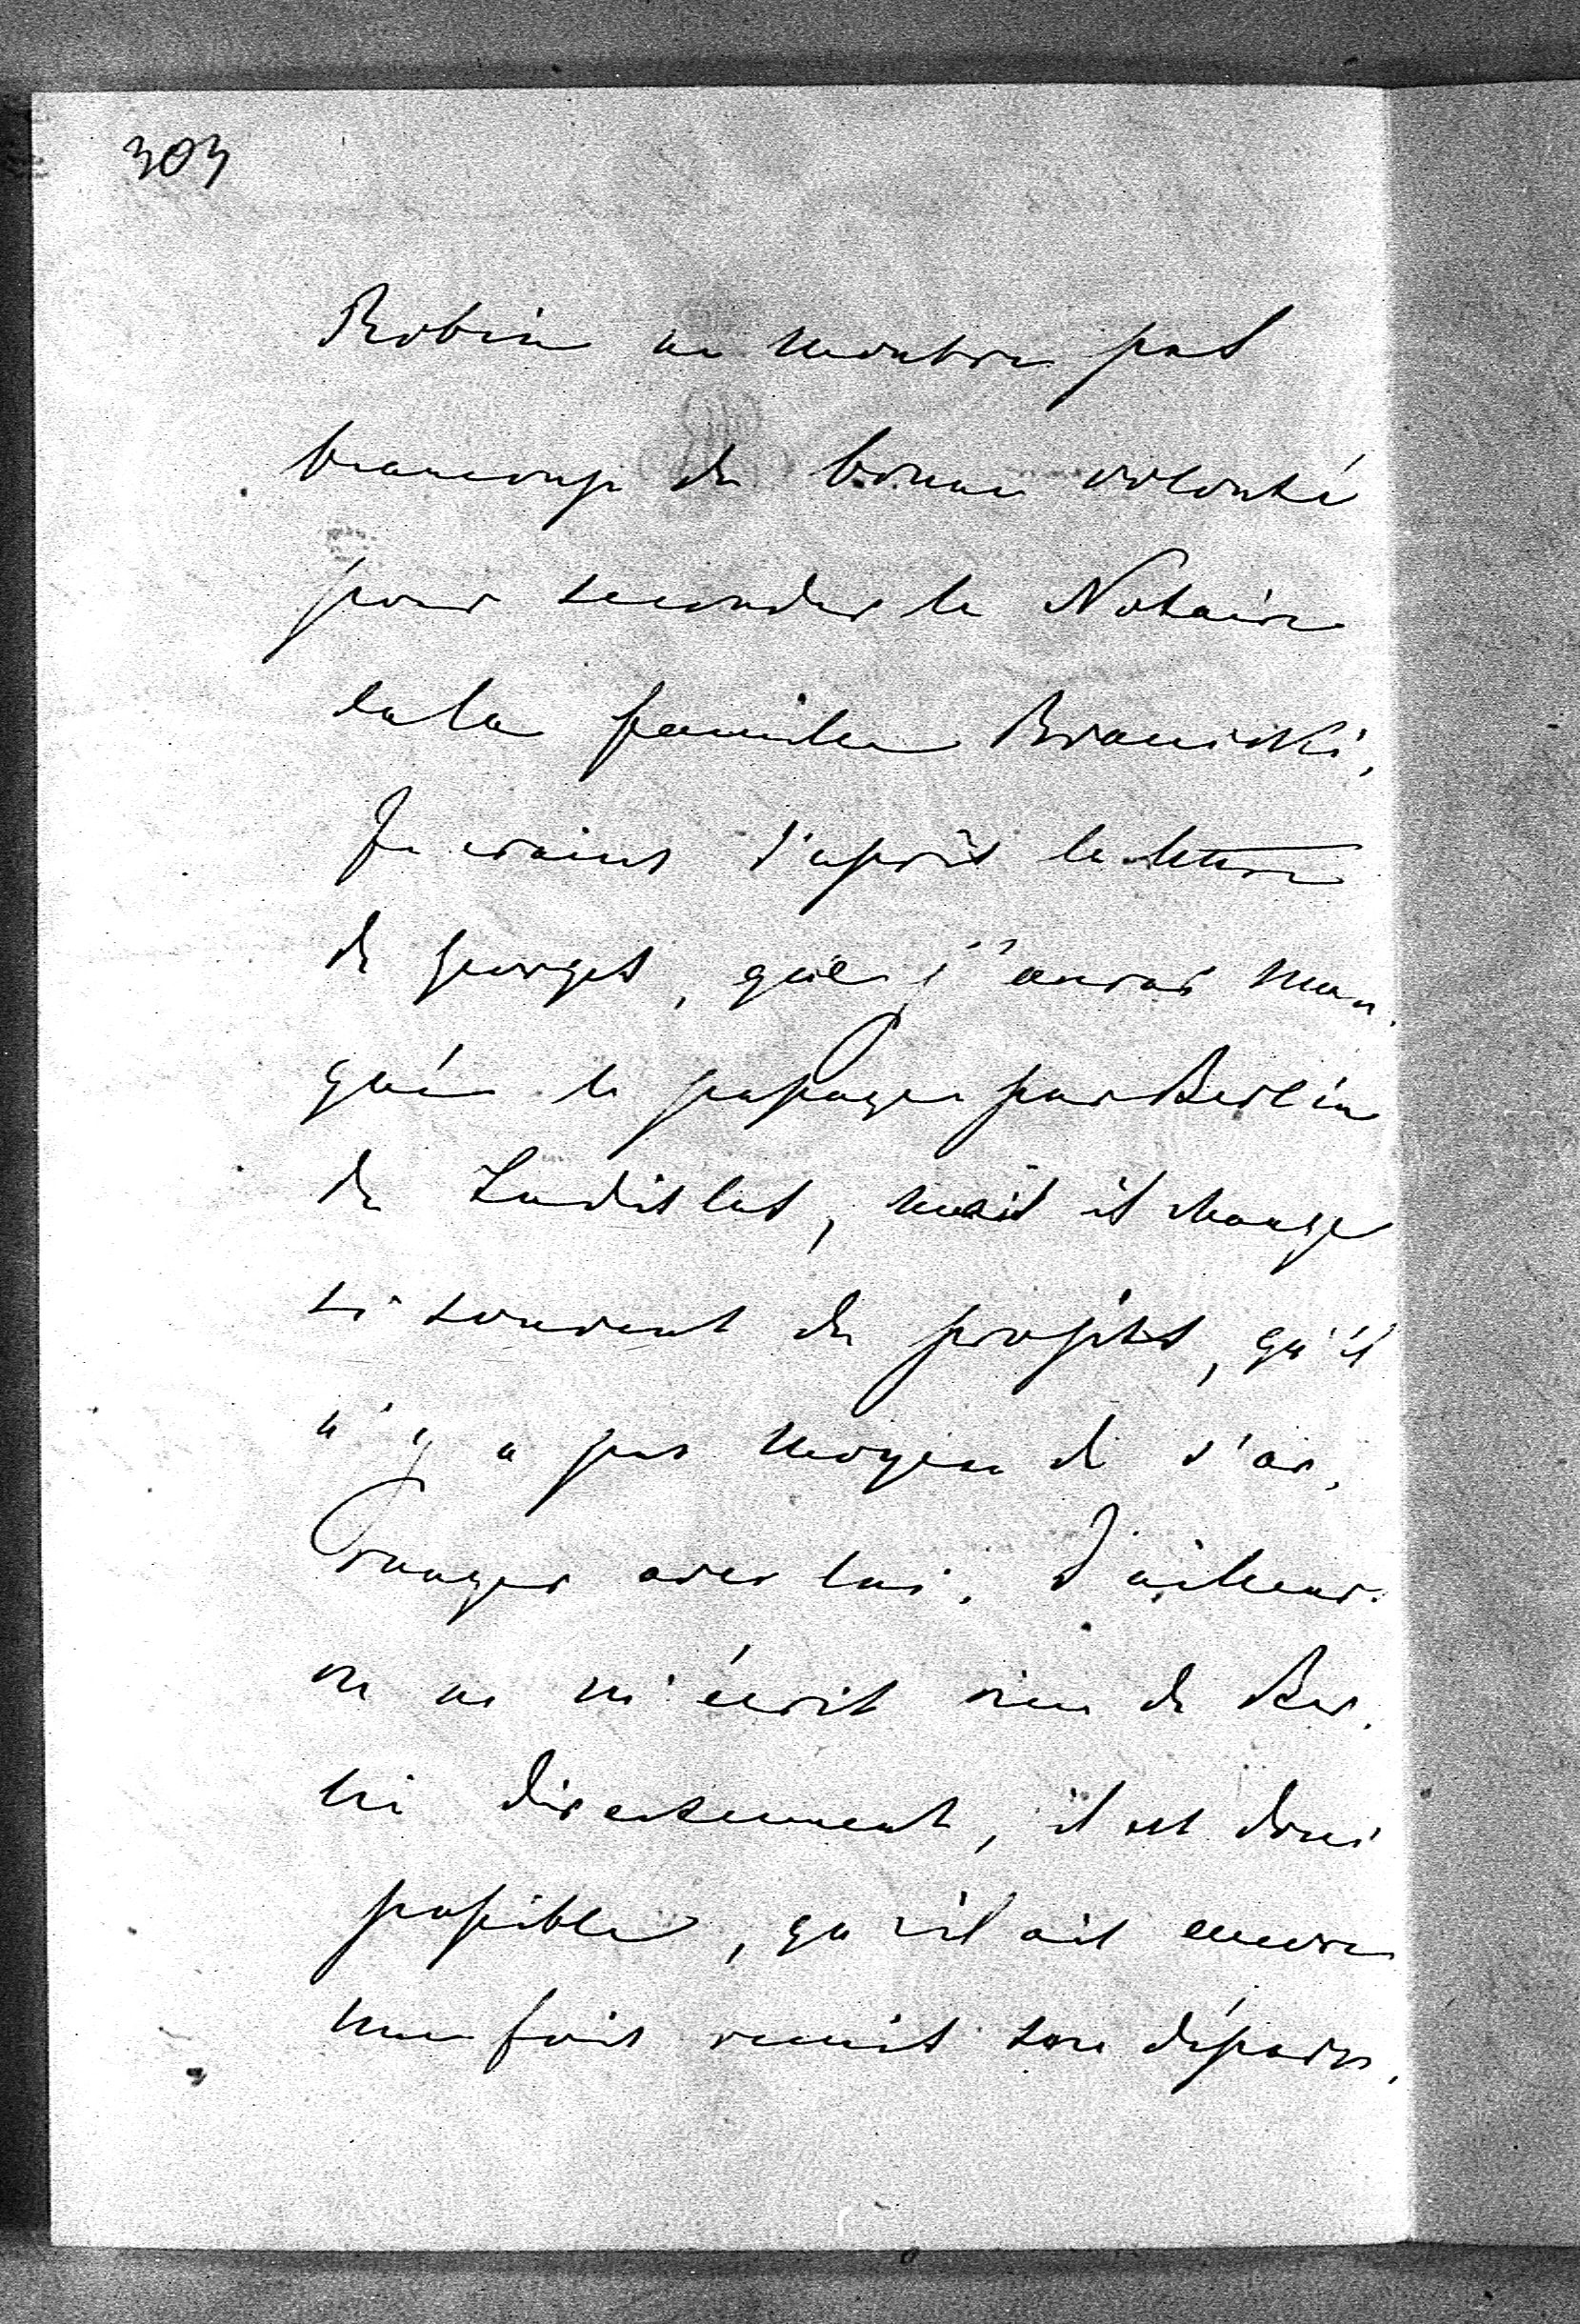 303
Robin ne montre pas
beaucoup de bonne volonté
pour seconder le Notaire
de la famille Branicki.
Je crains d'après la lettre
de Georges, que j'aurai man-
qué le passage par Berlin
de Ladislas, mais il change
si souvent de projets, qu'il
n'y a pas moyen de s'ar-
ranger avec lui. D'ailleurs
on ne m'écrit rien de Ber-
lin directement, il est donc
possible, qu'il ait encore
une fois remis son départ.